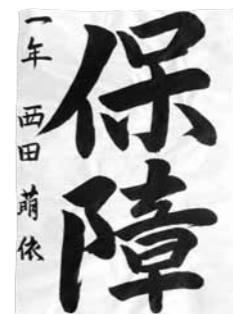 保障
一年 西田 萌依